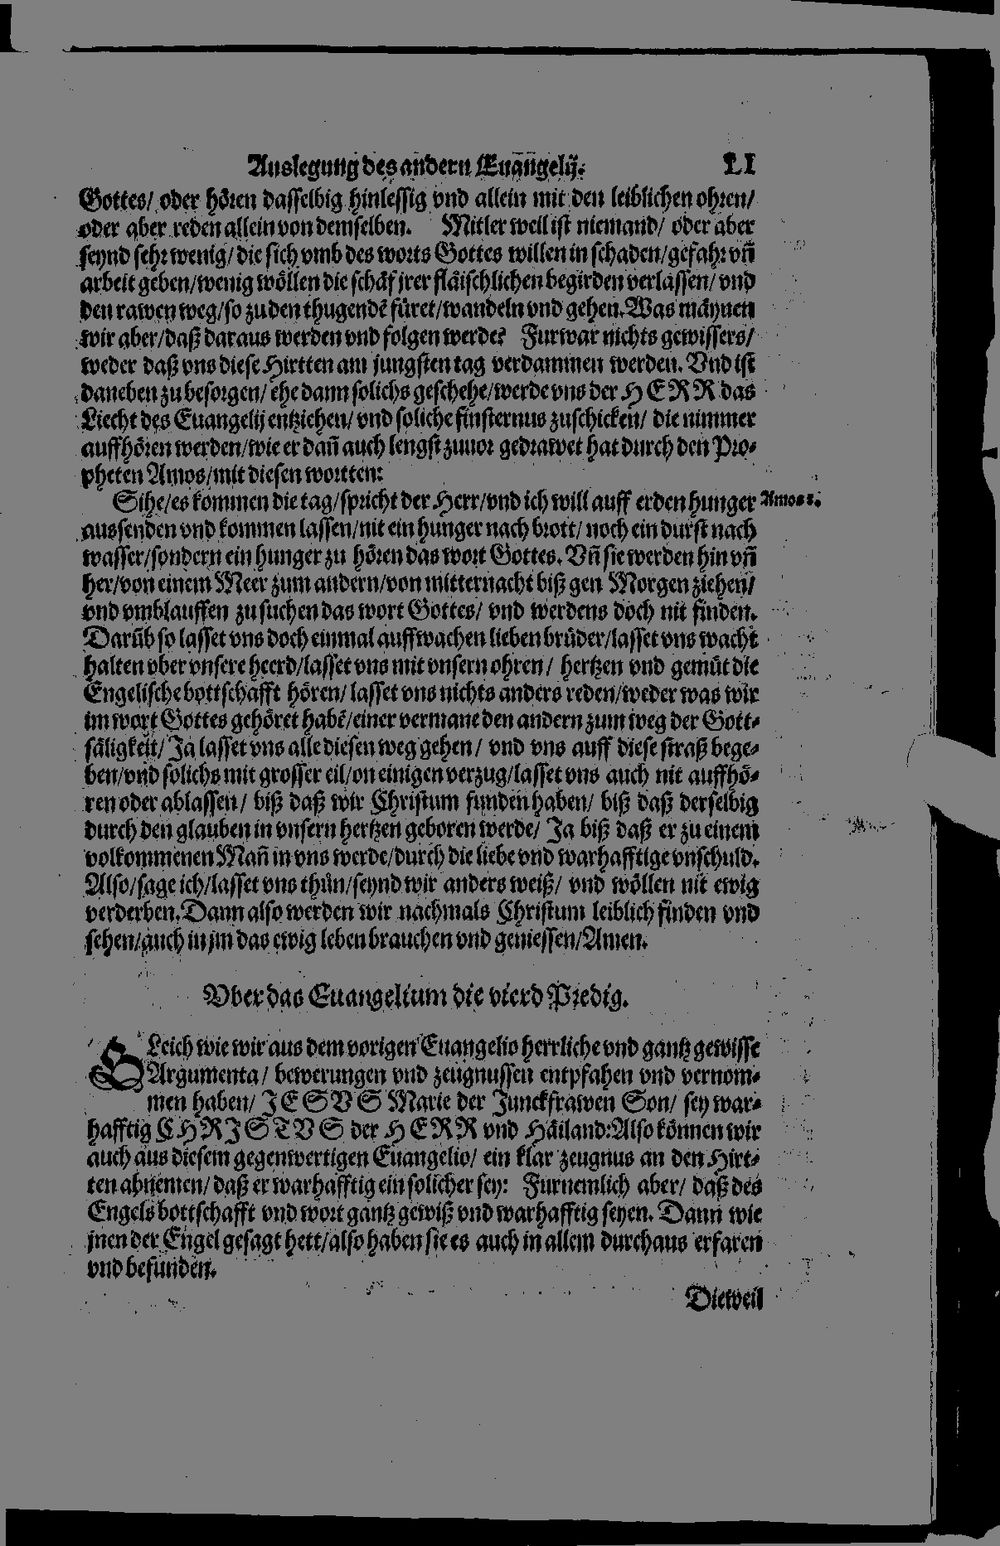 Auslegung des andern Euangelij. LI
Gottes/ oder hören dasselbig hinlessig vnd allein mit den leiblichen ohren/
oder aber reden allein von demselben. Mitler weil ist niemand/ oder aber
seynd sehr wenig/ die sich vmb des worts Gottes willen in schaden/gefahr vn̄
arbeit geben/wenig wöllen die schäf jrer fläischlichen begirden verlassen/ vnd
den rawen weg/so zu den thugendē füret/wandeln vnd gehen. Was mäynen
wir aber/daß daraus werden vnd folgen werde? Furwar nichts gewissers/
weder daß vns diese Hirtten am jungsten tag verdammen werden. Vnd ist
daneben zu besorgen/ ehe dann solichs geschehe/werde vns der HERR das
Liecht des Euangelij entziehen/ vnd soliche finsternus zuschicken/ die nimmer
auffhören werden/wie er dan̄ auch lengst zuuor gedrawet hat durch den Pro-
pheten Amos/mit diesen wortten:
Sihe/es kommen die tag/spricht der Herr/vnd ich will auff erden hunger Amos 8.
aussenden vnd kommen lassen/nit ein hunger nach brott/ noch ein durst nach
wasser/sondern ein hunger zu hören das wort Gottes. Vn̄ sie werden hin vn̄
her/von einem Meer zum andern/von mitternacht biß gen Morgen ziehen/
vnd vmblauffen zu suchen das wort Gottes/ vnd werdens doch nit finden.
Darūb so lasset vns doch einmal auffwachen lieben brüder/lasset vns wacht
halten vber vnsere heerd/lasset vns mit vnsern ohren/ hertzen vnd gemüt die
Engelische bottschafft hören/ lasset vns nichts anders reden/weder was wir
im wort Gottes gehöret habē/einer vermane den andern zum weg der Gott-
säligkeit/ Ja lasset vns alle diesen weg gehen/ vnd vns auff diese straß bege-
ben/vnd solichs mit grosser eil/on einigen verzug/lasset vns auch nit auffhö-
ren oder ablassen/ biß daß wir Christum funden haben/ biß daß derselbig
durch den glauben in vnsern hertzen geboren werde/ Ja biß daß er zu einem
volkommenen Man̄ in vns werde/durch die liebe vnd warhafftige vnschuld.
Also/sage ich/lasset vns thün/seynd wir anders weiß/ vnd wöllen nit ewig
verderben. Dann also werden wir nachmals Christum leiblich finden vnd
sehen/auch in jm das ewig leben brauchen vnd geniessen/Amen.
Vber das Euangelium die vierd Predig.
GLeich wie wir aus dem vorigen Euangelio herrliche vnd gantz gewisse
Argumenta/ bewerungen vnd zeugnussen entpfahen vnd vernom-
men haben/ JESVS Marie der Junckfrawen Son/ sey war-
hafftig CHRJSTVS der HERR vnd Häiland: Also können wir
auch aus diesem gegenwertigen Euangelio/ ein klar zeugnus an den Hirt-
ten abnemen/ daß er warhafftig ein solicher sey: Furnemlich aber/ daß des
Engels bottschafft vnd wort gantz gewiß vnd warhafftig seyen. Dann wie
jnen der Engel gesagt hett/also haben sie es auch in allem durchaus erfaren
vnd befunden.
Dieweil